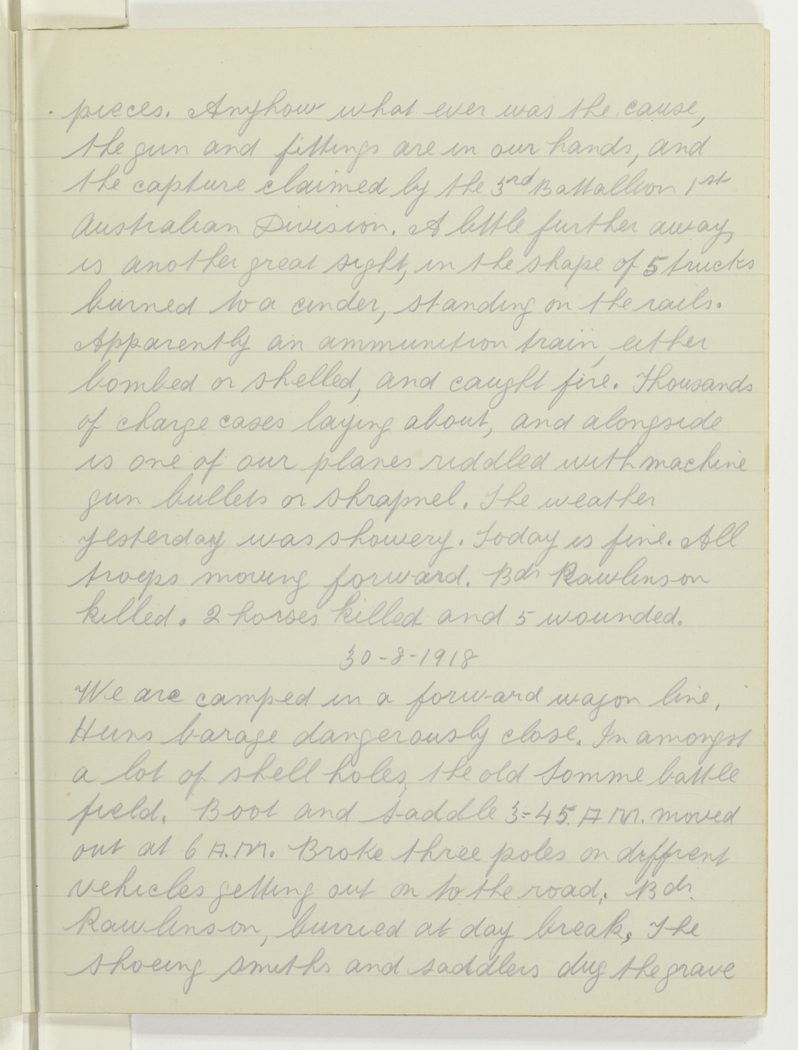 pieces. Anyhow what ever was the cause,
the gun and fittings are in our hands, and
the capture claimed by the 3rd Battallion 1st
Australian Division. A little further away,
is another great sight, in the shape of 5 trucks
burned to a cinder, standing on the rails.
Apparently an ammunition train, either
bombed or shelled, and caught fire. Thousands
of charge cases laying about, and alongside
is one of our planes riddled with machine
gun bullets or shrapnel. The weather
yesterday was showery. Today is fine. All
troops moving forward. Bdr Rawlinson
killed. 2 horses killed and 5 wounded.
30-8-1918
We are camped in a forward wagon line,
Huns barage dangerously close. In amongst
a lot of shell holes, the old Somme battle
field. Boot and saddle 3-45 A.M. moved
out at 6 A.M. Broke three poles on diffrent
vehicles getting out on to the road. Bdr.
Rawlinson, burried at day break. The
shoeing smiths and saddlers dug the grave